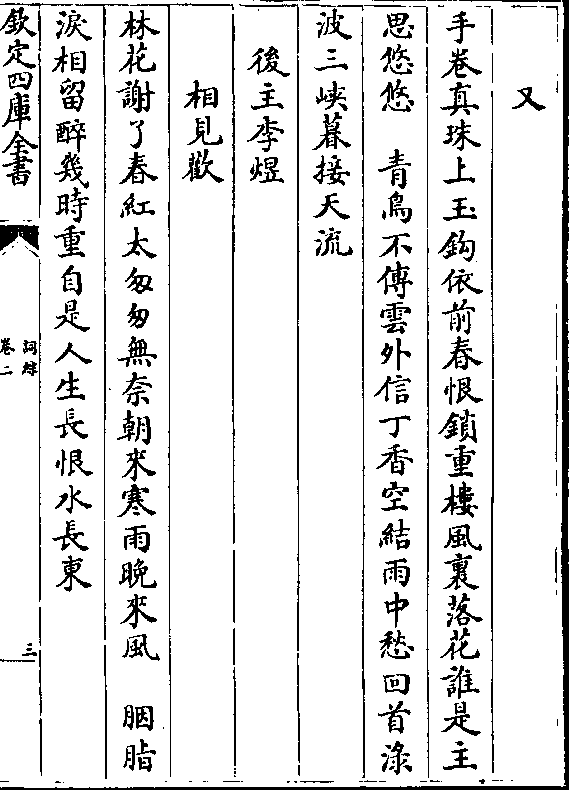 又
手卷真珠上玉鈎依前春恨鎖重樓風裏落花誰是主
思悠悠　青鳥不傳雲外信丁香空結雨中愁回首淥
波三峽暮接天流
後主李煜
相見歡
林花謝了春紅太匆匆無奈朝來寒雨晚來風　胭脂
淚相留醉幾時重自是人生長恨水長東
欽定四庫全書
詞綜
卷二
三